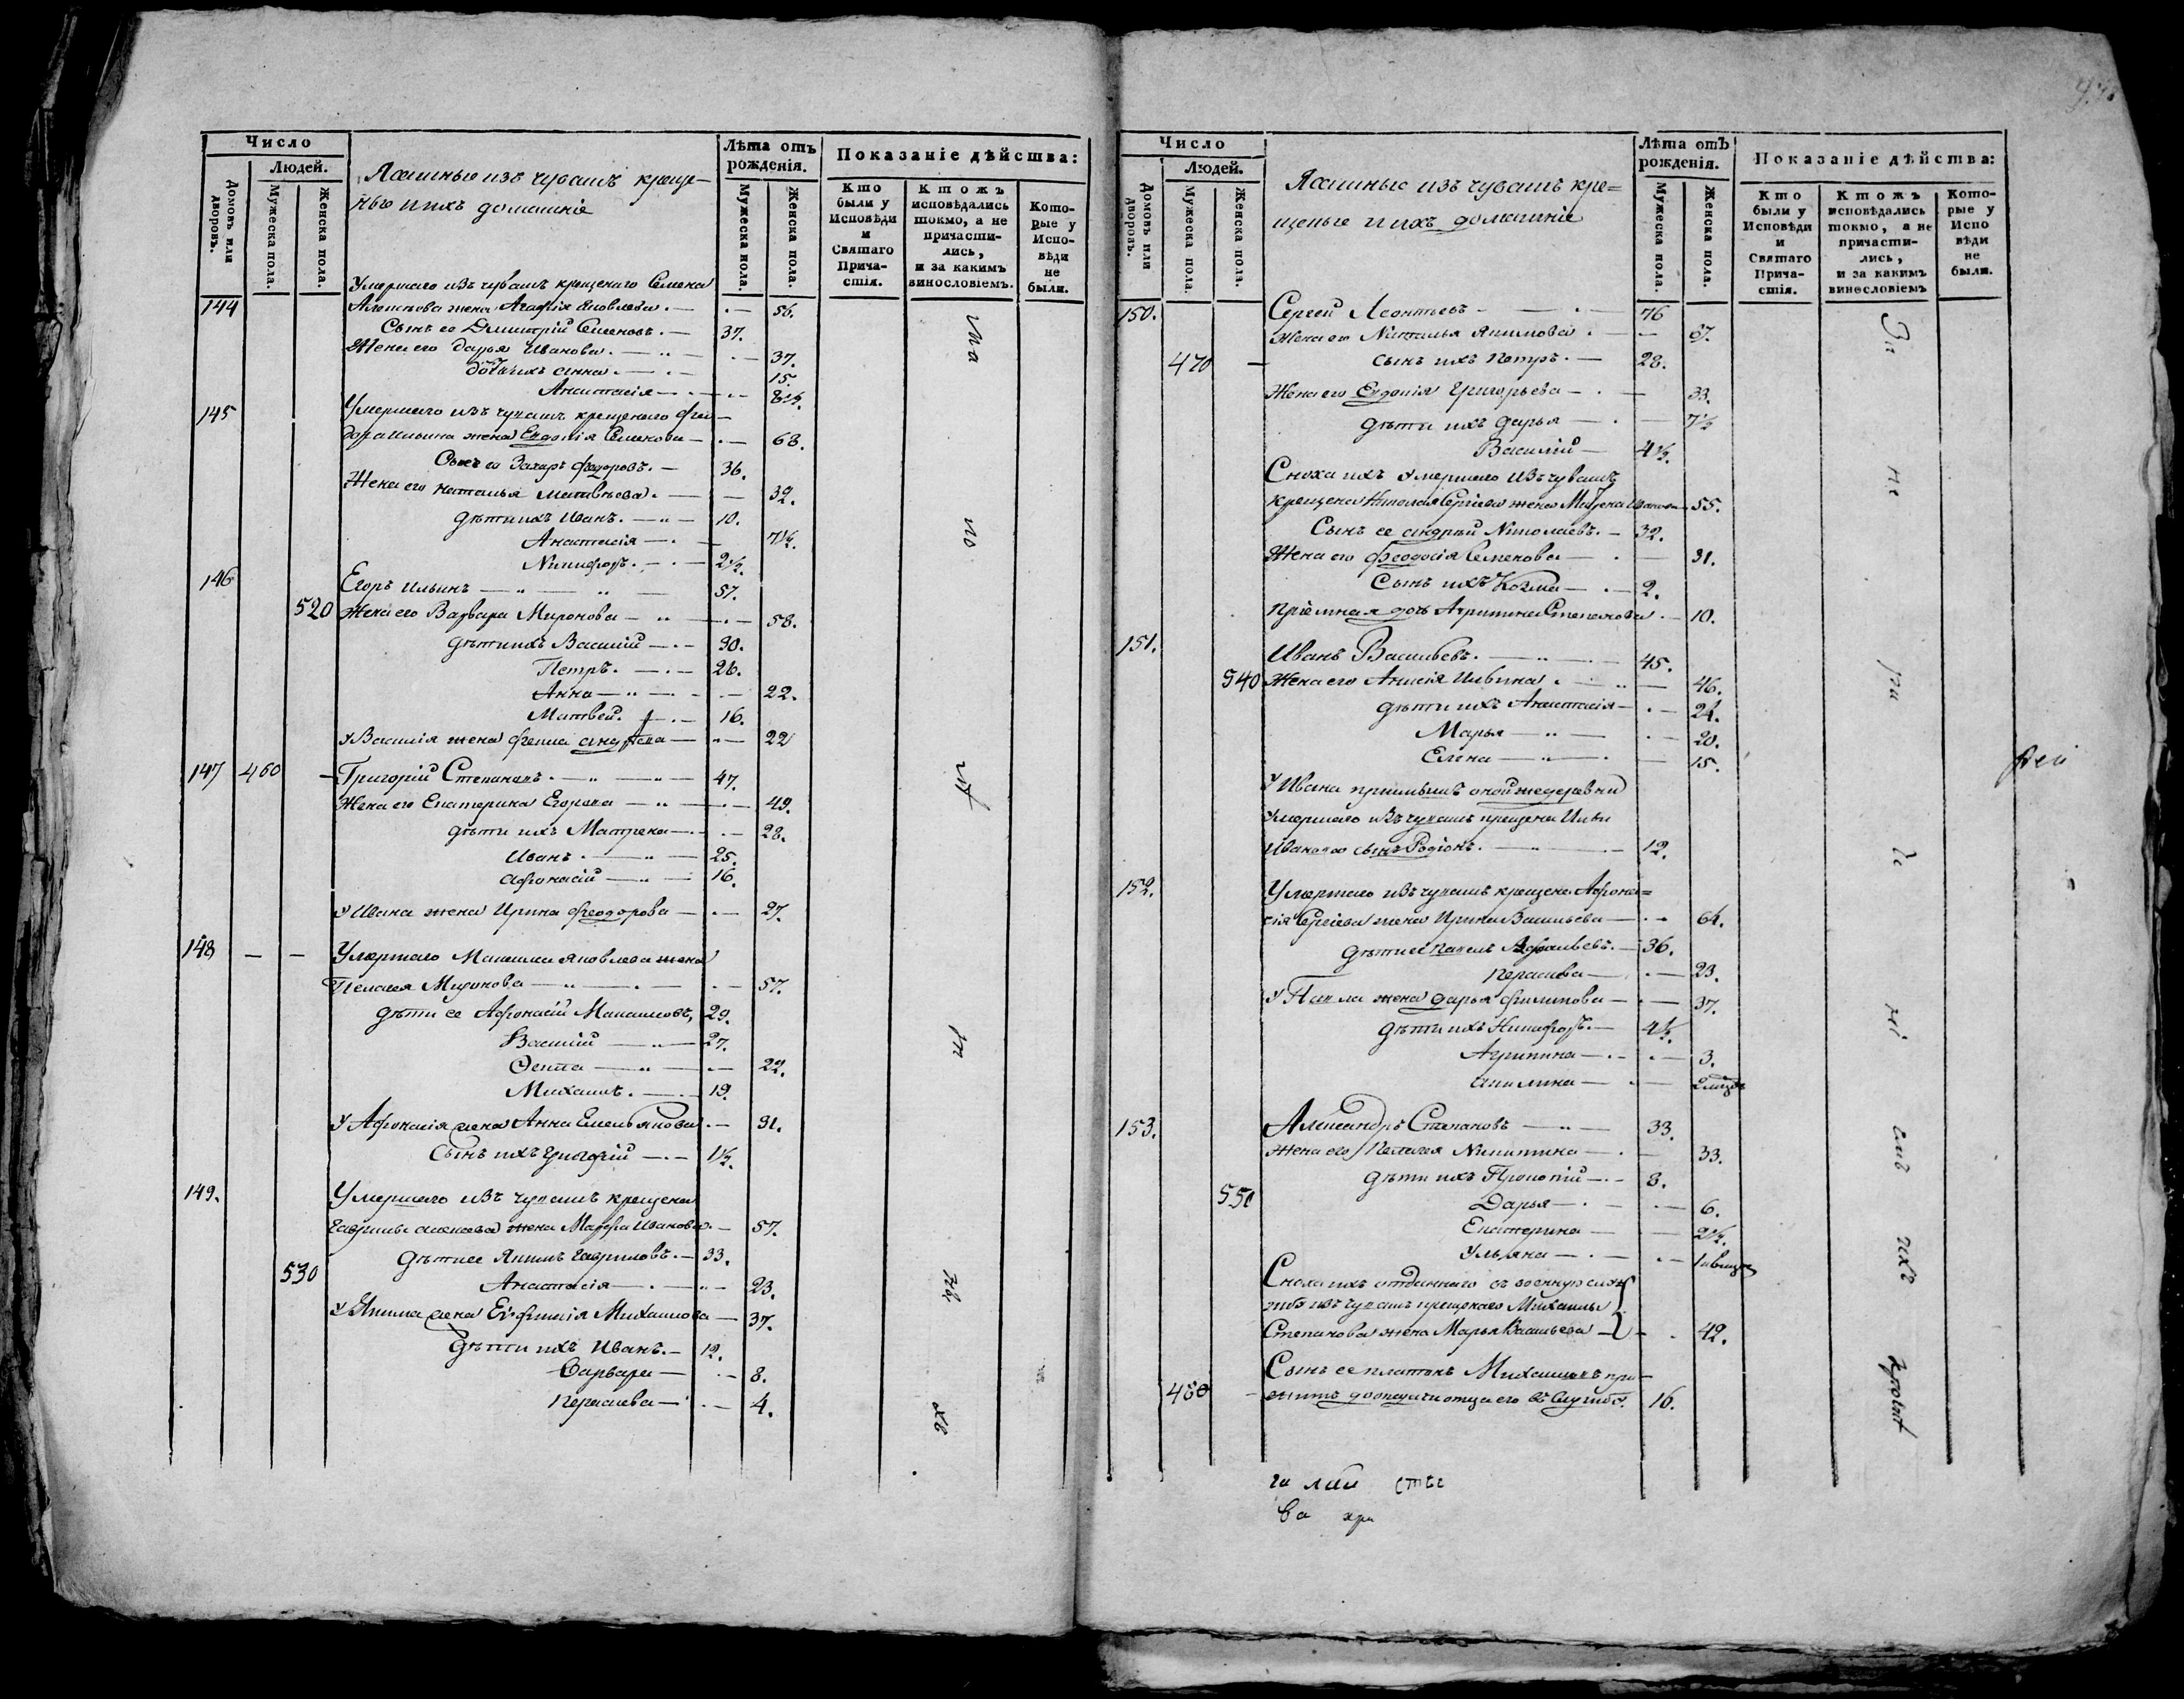 Число
Людей.
Домовъ или дворовъ.
Мужеска пола.
Женска пола.
Ясашные изъ чувашъ креще-
ные и ихъ домашніе
Лѣта отъ рожденія.
Мужеска пола.
Женска пола.
Показаніе дѣйства:
Кто были у Исповѣди и Святаго Прича-стія.
Ктожъ исповѣдались токмо, а не причасти-лись, и за какимъ винословіемъ.
Кото-рые у Испо-вѣди не были.
Умершаго изъ чувашъ крещенаго Семена
144 жена Агафія Яковлева 56.
Сынъ ее Димитрій Семеновъ. 37.
Жена его Дарья Иванова. 37.
дочь ихъ Анна 15.
Анастасія 8½.
145 Умершаго изъ чувашъ крещенаго Фео-
дора Ильина жена Евдокія Семенова 68.
Сынъ ее Захаръ Федоровъ. 36.
Жена его Наталья Матвѣева. 39.
дѣти ихъ Иванъ. 10.
Анастасія 7½.
Никифоръ. 2½.
146 Егоръ Ильинъ 57.
520 Жена его Варвара Миронова 58.
дѣти ихъ Василій 30.
Петръ. 26.
Анна 22.
Матвей. 16.
у Василія жена Фекла Андреева 22
147 460 Григорій Степановъ. 47.
Жена его Екатерина Егорова 49.
дѣти ихъ Матрена 28.
Иванъ. 25.
Афонасій 16.
у Ивана жена Ирина Феодорова 27.
148 Умершаго Максима Яковлева жена
Пелагея Миронова 57.
дѣти ее Афонасій Максимовъ, 29.
Василій 27.
Фекла 22.
Михаилъ. 19.
у Афонасія жена Анна Емельянова 31.
Сынъ ихъ Григорій 1½.
149. Умершаго изъ чувашъ крещена
Гаврилы жена Марфа Иванова. 57.
дѣти ее Якимъ Гавриловъ. 33.
530 Анастасія 23.
у Якима жена Евфимія Михаилова 37.
дѣти ихъ Иванъ. 12.
Варвара 8.
Параскева 4.
Число
Людей.
Домовъ или дворовъ.
Мужеска пола.
Женска пола.
Ясашные изъ чувашъ кре=
щеные и ихъ домашніе
Лѣта отъ рожденія.
Мужеска пола.
Женска пола.
Показаніе дѣйства:
Кто были у Исповѣди и Святаго Прича-стія.
Ктожъ исповѣдались токмо, а не причасти-лись, и за какимъ винословіемъ
Кото-рые у Испо вѣди не были.
150. Сергей Леонтьевъ 76
Жена его Наталья Якимова 67.
470 Сынъ ихъ Петръ. 28.
Жена его Евдокія Григорьева 33.
дѣти ихъ Дарья 7½
Василій 4½.
Сноха ихъ умершаго изъ чувашъ
крещена Николая Сергіева жена Матрена Иванова 55.
Сынъ ее Андрей Николаевъ. 32.
Жена его Феодосія Семенова 31.
Сынъ ихъ Козма 2.
Пріемная дочь Агрипина Степанова 10.
151. Иванъ Васильевъ. 45.
540 Жена его Анисія Ильина. 46.
дѣти ихъ Анастасія 24.
Марья 20.
Елена 15.
У Ивана оной же деревни
умершаго изъ чувашъ крещена Ильи
Иванова сынъ Родіонъ. 12.
152. Умершаго изъ чувашъ крещена Афона=
сія Сергіева жена Ирина Васильева 64.
дѣти ее Павелъ Афонасьевъ. 36.
Параскева 23.
у Павла жена Дарья Филипова 37.
дѣти ихъ Никифоръ. 4½.
Агрипина 3.
Акилина
153. Александръ Степановъ 33.
Жена его Пелагея Никитина 33.
дѣти ихъ Прокопій 8.
550 Дарья 6.
Екатерина 2½.
Ульяна
Сноха ихъ отданнаго въ военную служ
бу изъ чувашъ крещенаго Михаилы
Степанова жена Марья Васильева 42.
Сынъ ее Платонъ Михаиловъ
480 отца его въ службу. 16.